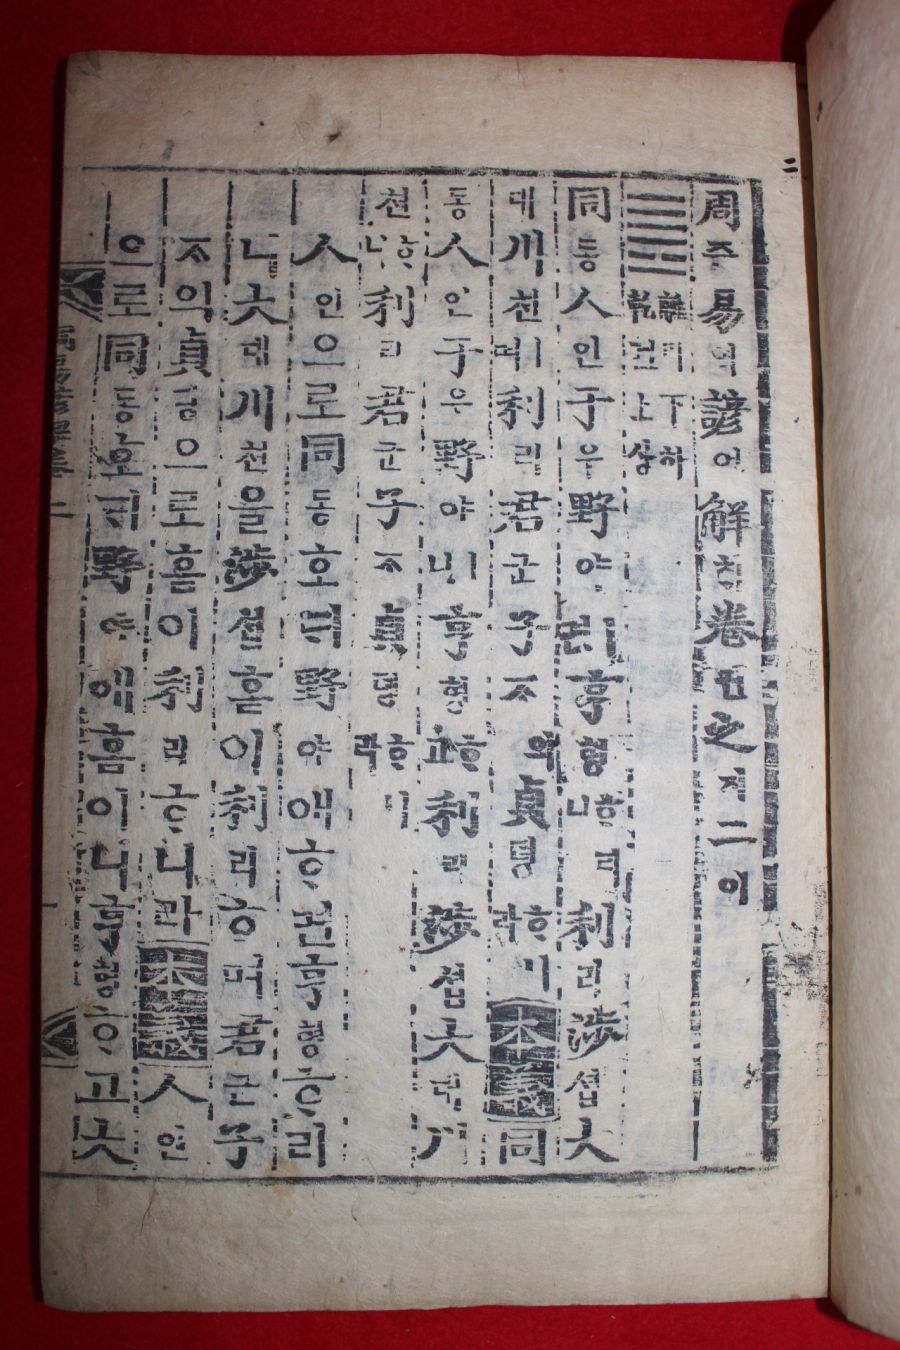 周쥬易역諺언解ᄒᆡ卷권之지二이
離리下하 乾건上샹
同동人인于우野야ㅣ면亨형ᄒᆞ리니利리涉셥大
대川쳔며利리君군子ᄌᆞ의貞뎡ᄒᆞ니라本義同
동人인于우野야ㅣ니亨형ᄒᆞ고利리涉셥大대川
쳔ᄒᆞ니利리君군子ᄌᆞ貞뎡ᄒᆞ니라
人인으로同동호ᄃᆡ野야애ᄒᆞ면亨형ᄒᆞ리
니大대川쳔을涉셥홈이利리ᄒᆞ며君군子
ᄌᆞ의貞뎡으로홈이利리ᄒᆞ니라本義人인
으로同동호ᄃᆡ野야애홈이니亨형ᄒᆞ고大
周易諺解卷二